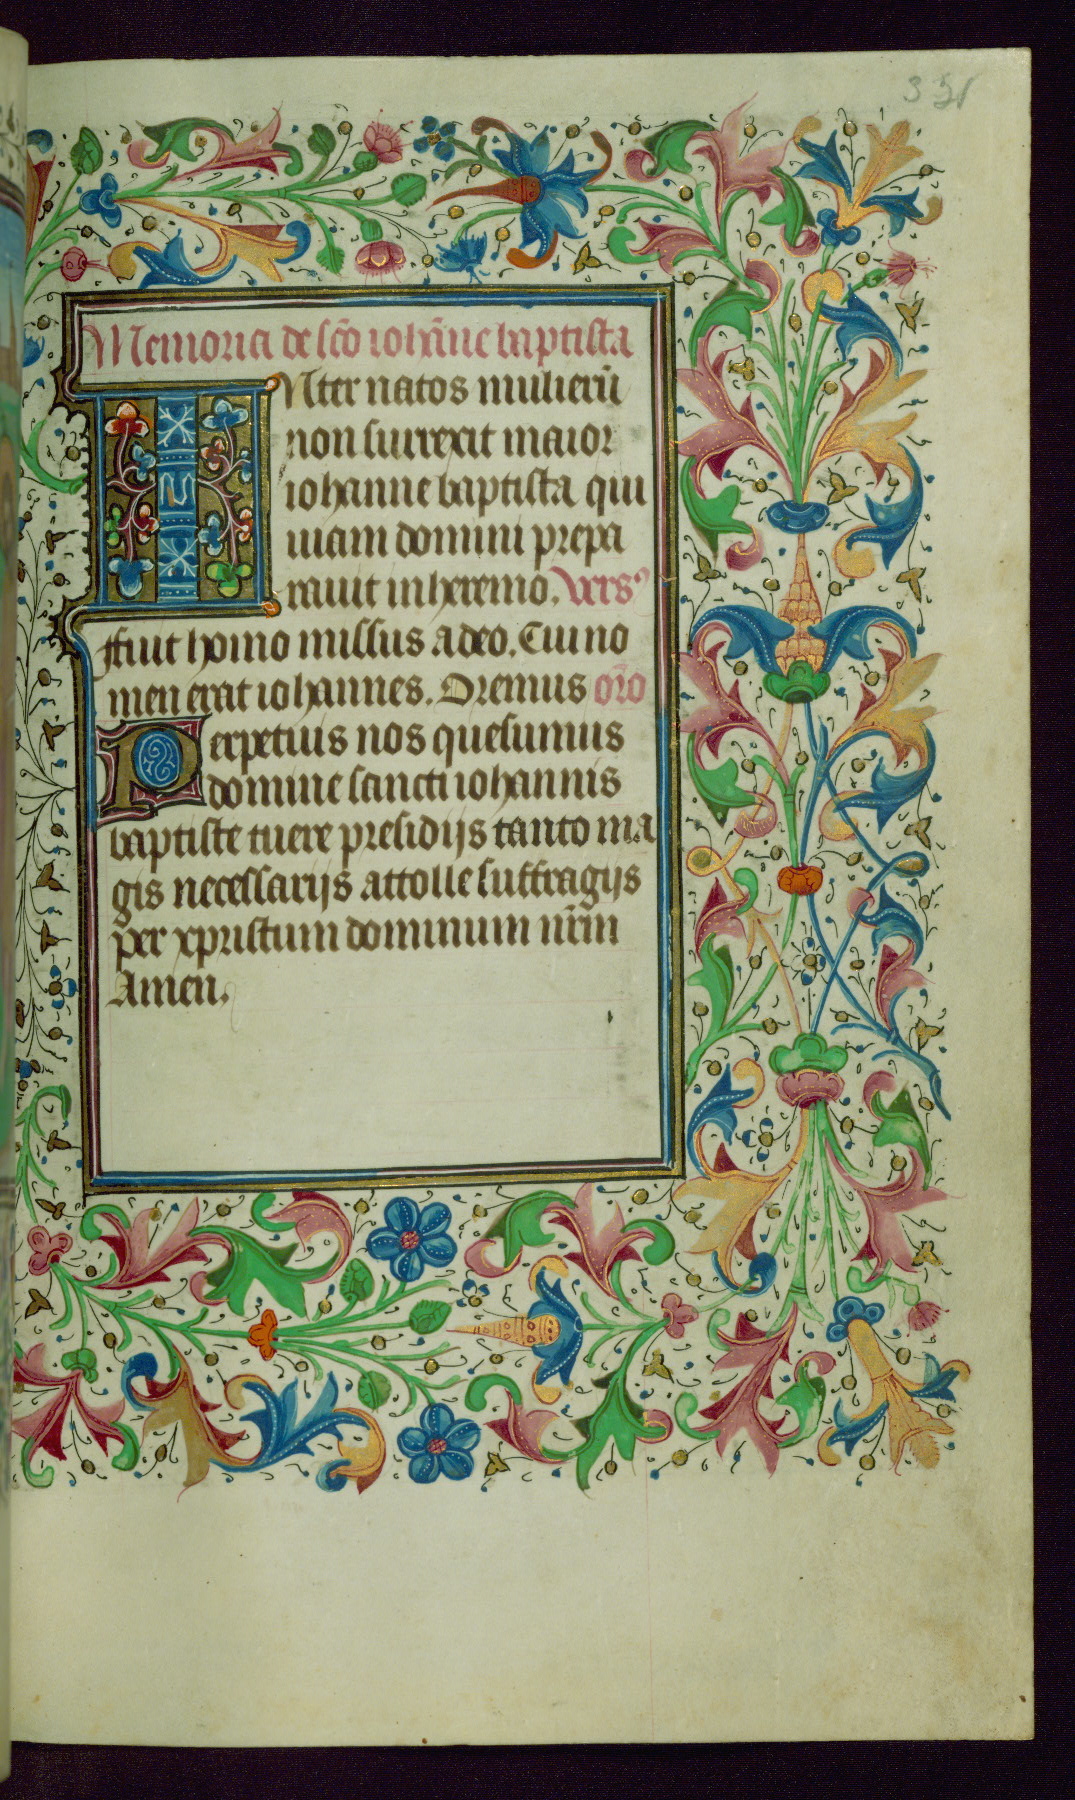 Memoria de sc̄o ioha̅ne baptista
Inter natos mulieru̅
non surrexit maior
iohanne baptista qui
uiam domini prepa
rauit in heremo. Versꝰ
ffuit homo missus a deo. Cui no
men erat iohannes. Oremus or̅o
Perpetuis nos quesumus
domine sancti iohannis
baptiste tuere presidijs tanto ma
gis necessarijs attolle suffragijs
per xpristum dominum nr̅m
Amen.